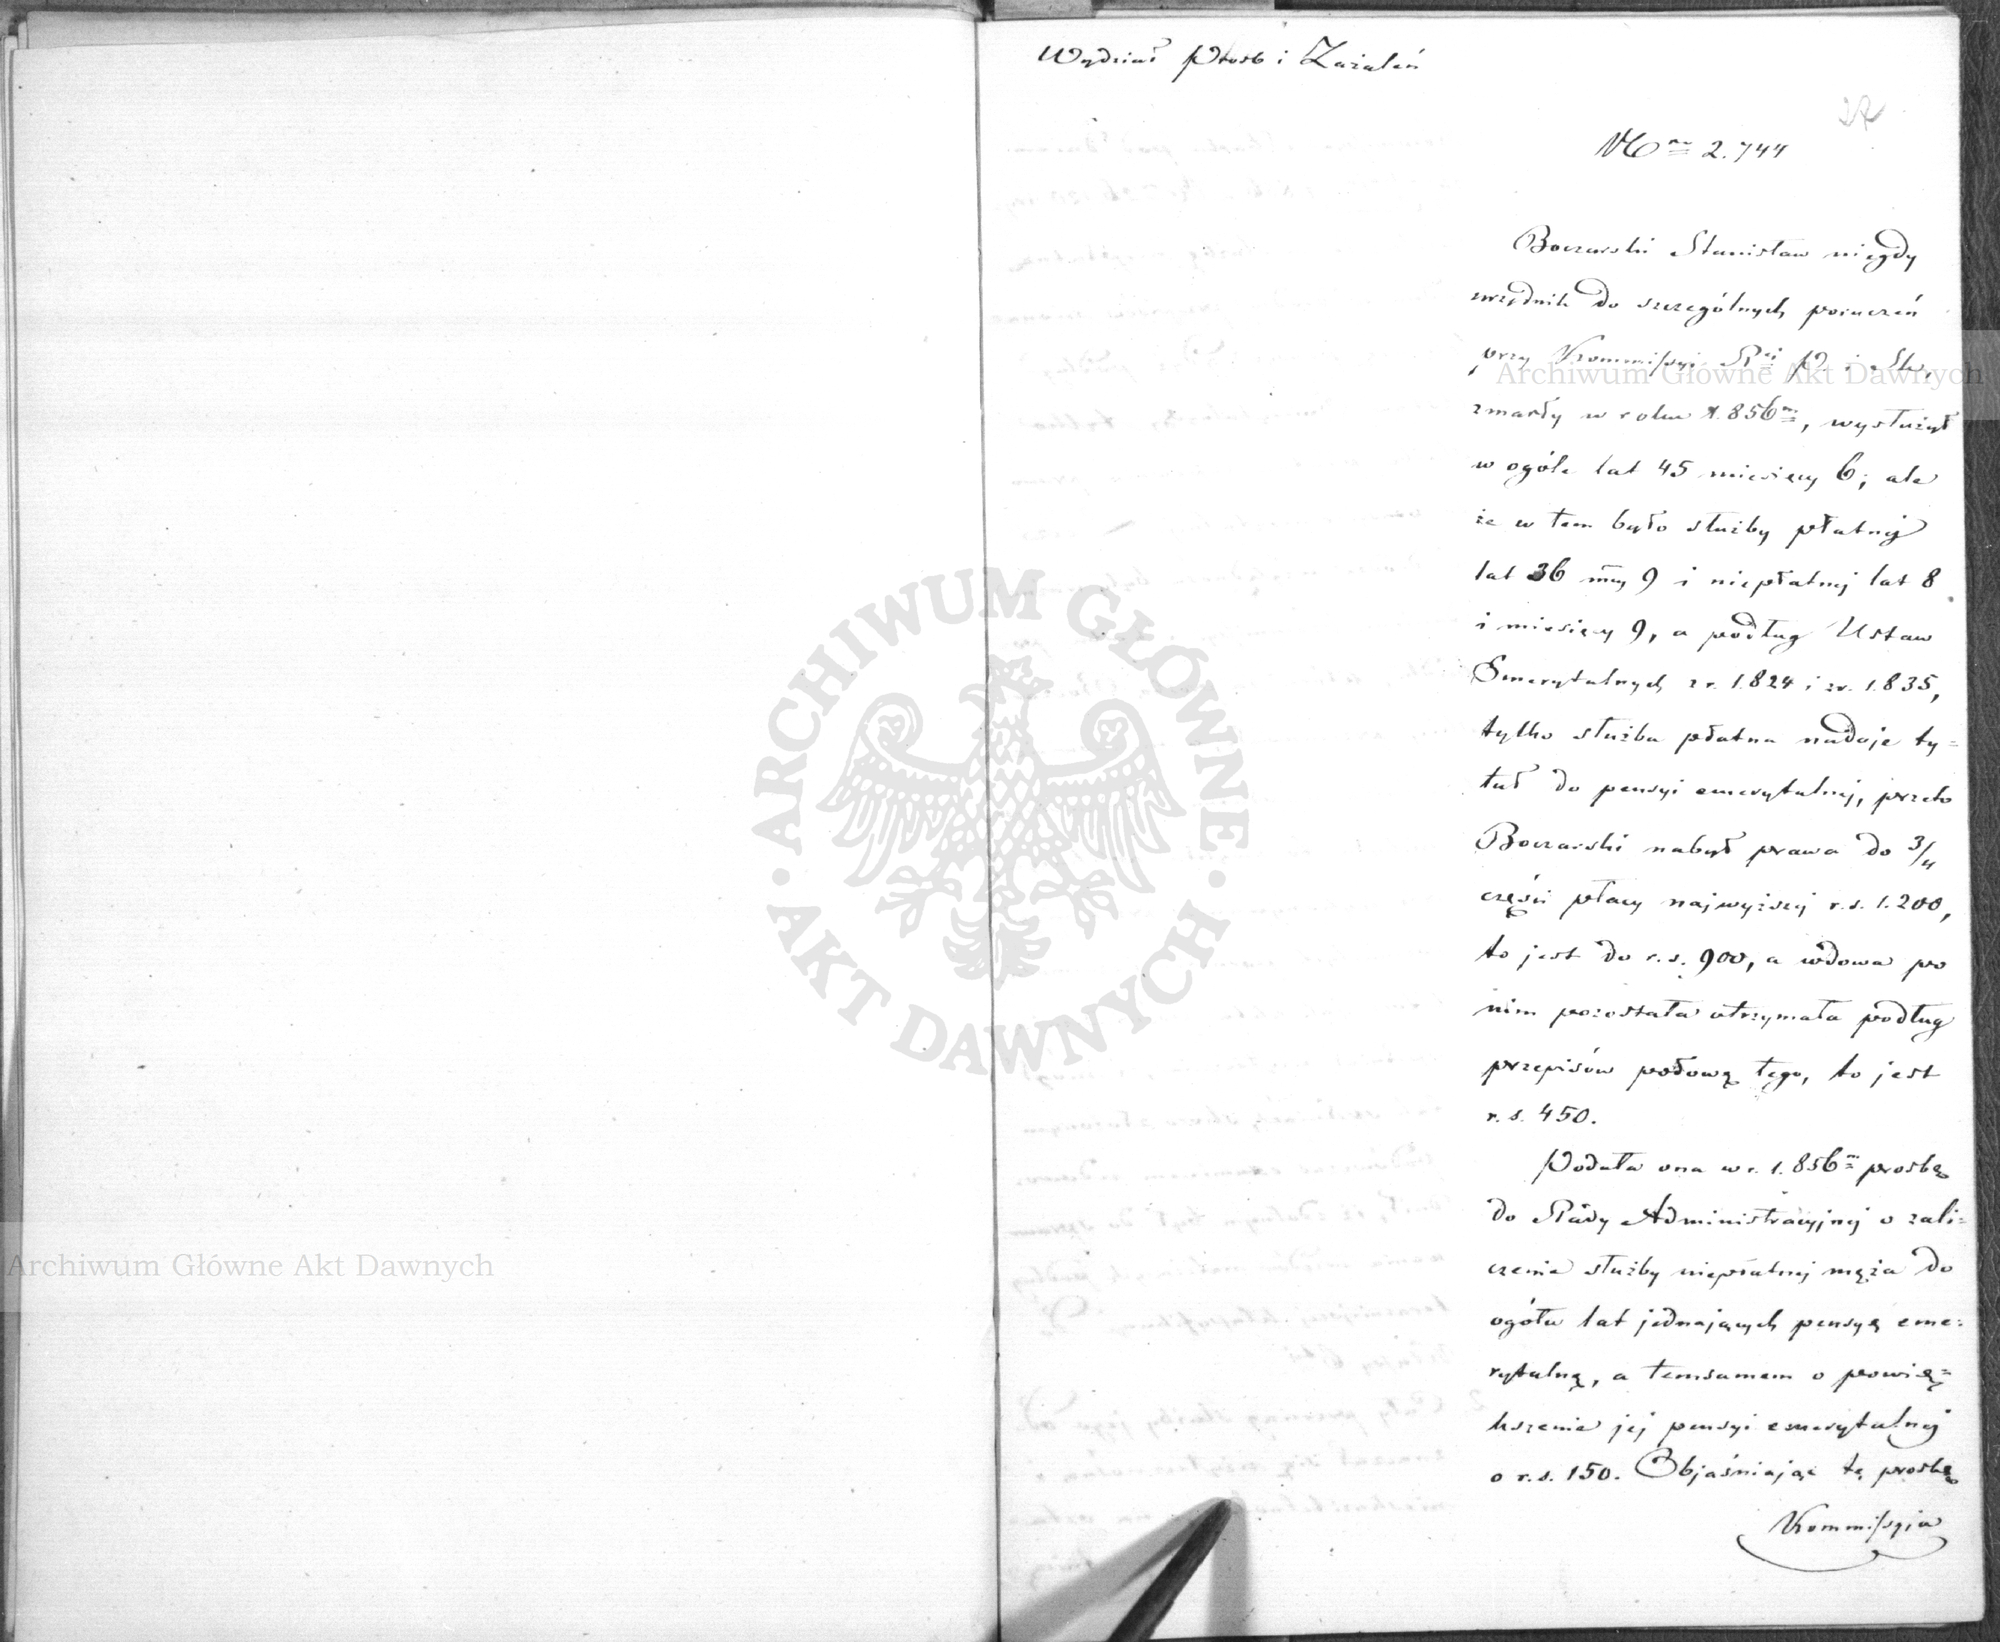 Wydział Próśb i Zażaleń
27
N<sup>ro</sup> 2.744
Boczarski Stanisław niegdy
urzędnik do szczególnych poruczeń
przy Kommissyi R<sup>ej</sup> P. i Sk.,
zmarły w roku 1.856<sup>m</sup>, wysłużył
w ogóle lat 45 miesięcy 6; ale
że w tem było służby płatnéj
lat 36 mcy 9 i niepłatnej lat 8
i miesięcy 9, a podług Ustaw
Emerytalnych z r. 1.824 i z r. 1.835,
tylko służba płatna nadaje ty=
tuł do pensyi emerytalnej, przeto
Boczarski nabył prawa do 3/4
części płacy najwyższej r.s. 1.200,
to jest do r.s. 900, a wdowa po
nim pozostała otrzymała podług
przepisów połowę tego, to jest
r.s. 450.
Podała ona w r. 1.856<sup>m</sup> prosbę
do Rady Administracyjnej o zali=
czenie służby niepłatnej męża do
ogółu lat jednających pensyą eme=
rytalną, a temsamem o powięk=
kszenie jej pensyi emerytalnej
o r.s. 150. Objaśniając tę prosbę
Kommissyia
ARCHIWUM GŁÓWNE AKT DAWNYCH
Archiwum Główne Akt Dawnych
Archiwum Główne Akt Dawnych